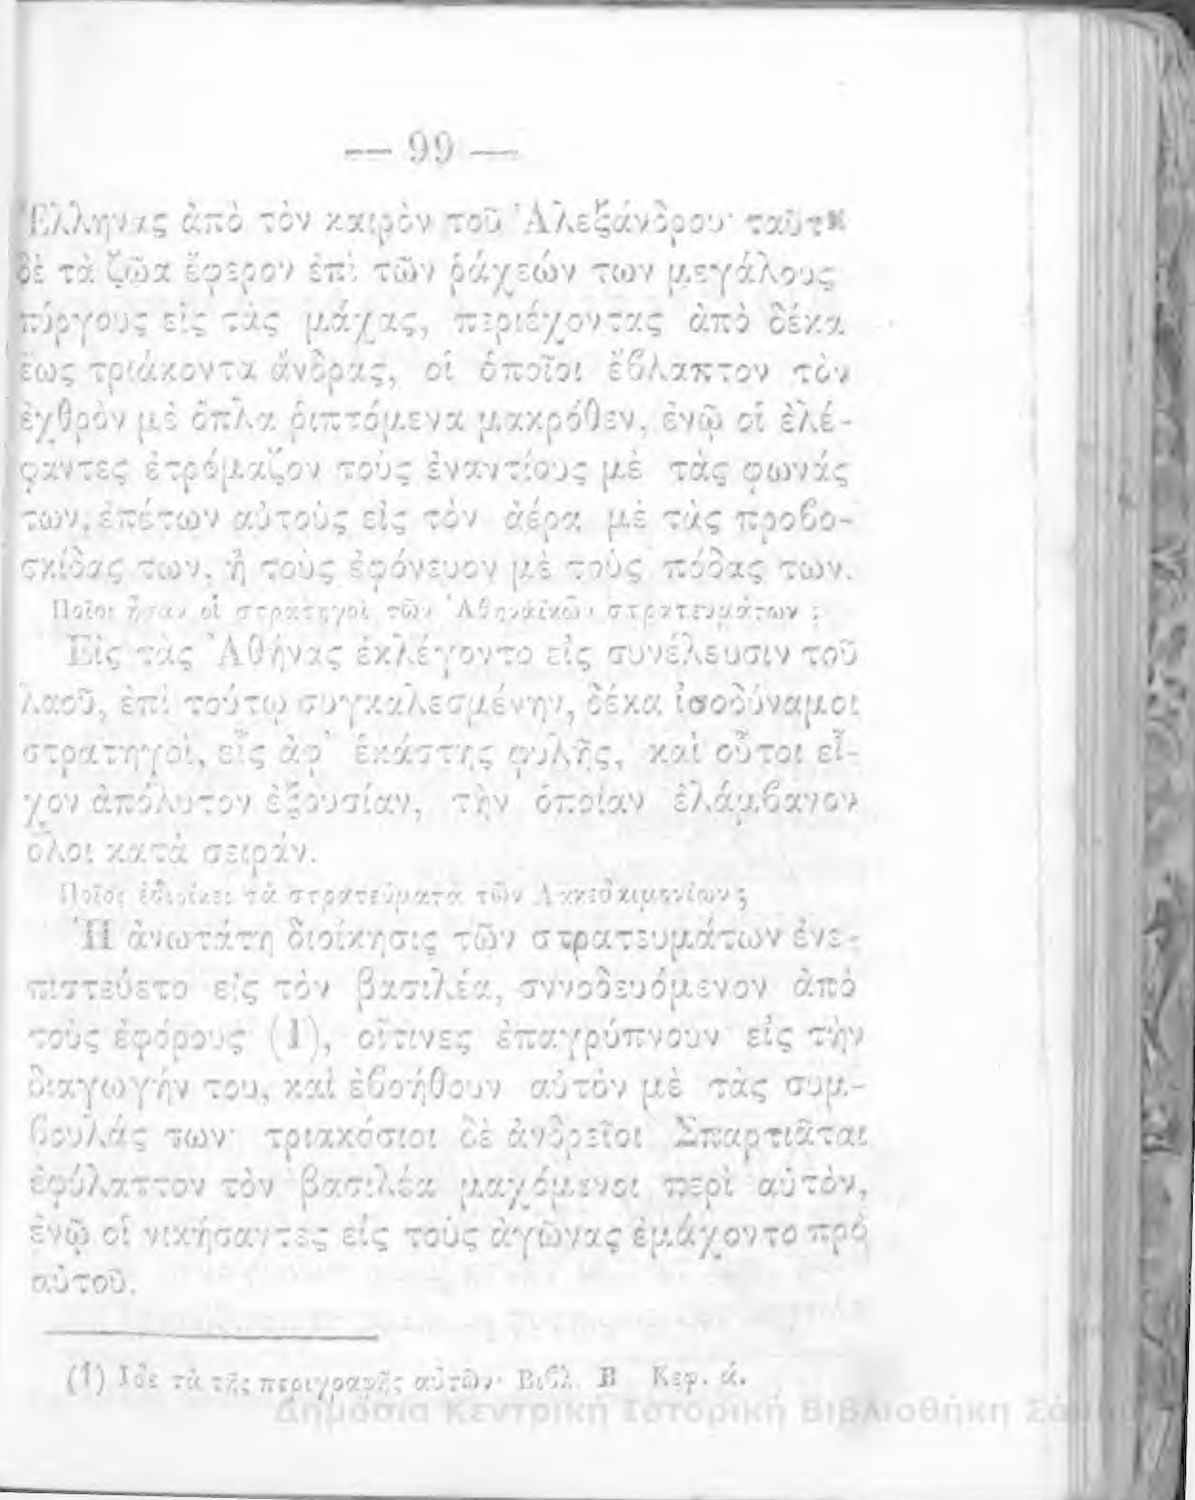 — 99 —
Ἕλληνας ἀπὸ τὸν καιρὸν τοῦ Ἀλεξάνδρου· ταῦτα
δὲ τὰ ζῶα ἔφερον ἐπὶ τῶν ῥάχεών των μεγάλους
πύργους εἰς τὰς μάχας, περιέχοντας ἀπὸ δέκα
ἕως τριάκοντα ἄνδρας, οἱ ὁποῖοι ἔβλαπτον τὸν
ἐχθρὸν μὲ ὅπλα ῥιπτόμενα μακρόθεν, ἐνῷ οἱ ἐλέ-
φαντες ἐτρόμαζον τοὺς ἐναντίους μὲ τὰς φωνάς
των, ἐπέτων αὐτοὺς εἰς τὸν ἀέρα μὲ τὰς προβο-
σκίδας των, ἢ τοὺς ἐφόνευον μὲ τοὺς πόδας των.
Ποῖοι ἦσαν οἱ στρατηγοὶ τῶν Ἀθηναϊκῶν στρατευμάτων ;
Εἰς τὰς Ἀθήνας ἐκλέγοντο εἰς συνέλευσιν τοῦ
λαοῦ, ἐπὶ τούτῳ συγκαλεσμένην, δέκα ἰσοδύναμοι
στρατηγοὶ, εἷς ἀφ' ἑκάστης φυλῆς, καὶ οὗτοι εἶ-
χον ἀπόλυτον ἐξουσίαν, τὴν ὁποίαν ἐλάμβανον
ὅλοι κατὰ σειράν.
Ποῖος ἐδιοίκει τὰ στρατεύματα τῶν Λακεδαιμονίων ;
Ἡ ἀνωτάτη διοίκησις τῶν στρατευμάτων ἐνε-
πιστεύετο εἰς τὸν βασιλέα, συνοδευόμενον ἀπὸ
τοὺς ἐφόρους (1), οἵτινες ἐπαγρύπνουν εἰς τὴν
διαγωγήν του, καὶ ἐβοήθουν αὐτὸν μὲ τὰς συμ-
βουλάς των· τριακόσιοι δὲ ἀνδρεῖοι Σπαρτιᾶται
ἐφύλαττον τὸν βασιλέα μαχόμενοι περὶ αὐτὸν,
ἐνῷ οἱ νικήσαντες εἰς τοὺς ἀγῶνας ἐμάχοντο πρὸ
αὐτοῦ.
(1) Ἰδε τὰ τῆς περιγραφῆς αὐτῶν· Βιβλ. Β Κεφ. ά.
Δημόσια Κεντρική Ιστορική Βιβλιοθήκη